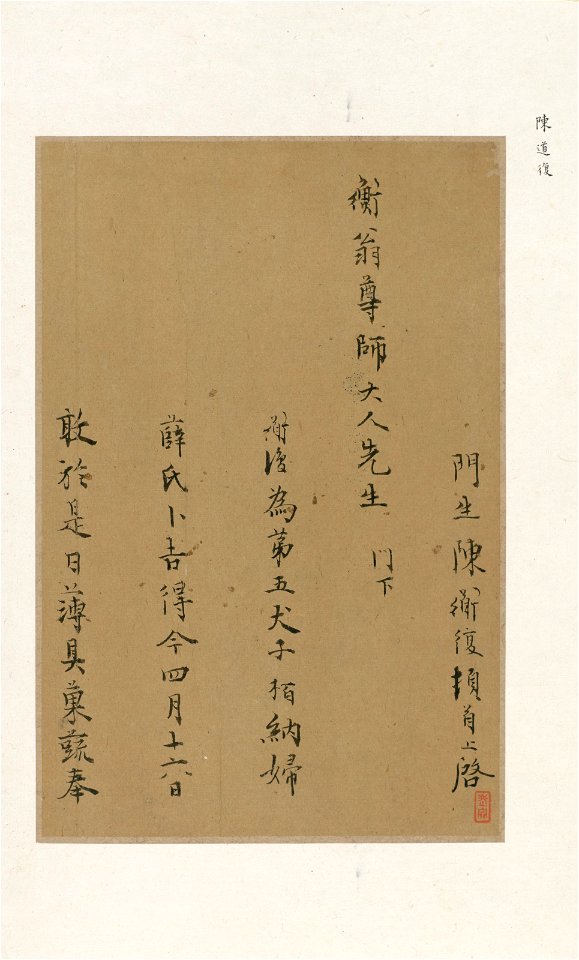 陳道復
門生陳衜復頓首上啓
衡翁尊師大人先生 門下
衜復為第五犬子栢納婦
薛氏卜吉得今四月十六日
敢於是日薄具菓蔬奉